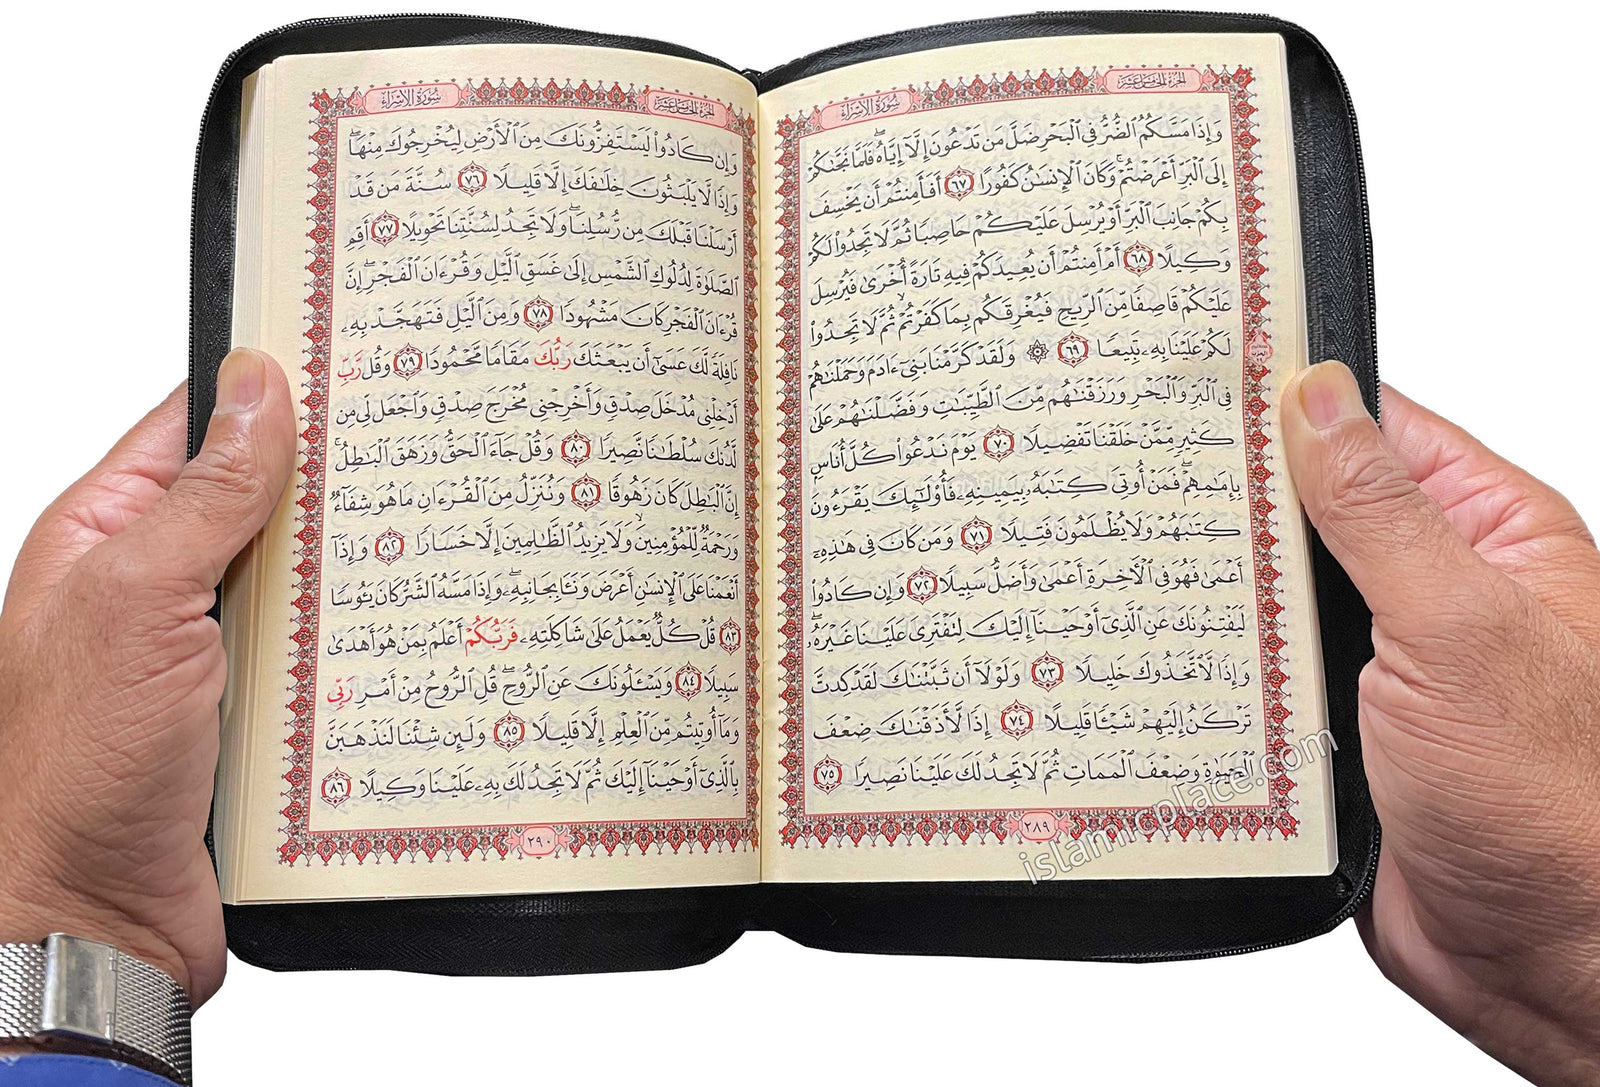 سُورَةُ الإِسْرَاءِ
الجُزْءُ الخَامِسَ عَشَرَ
وَإِذَا مَسَّكُمُ ٱلضُّرُّ فِي ٱلْبَحْرِ ضَلَّ مَن تَدْعُونَ إِلَّآ إِيَّاهُ ۖ فَلَمَّا نَجَّىٰكُمْ
إِلَى ٱلْبَرِّ أَعْرَضْتُمْ ۚ وَكَانَ ٱلْإِنسَٰنُ كَفُورًا ٦٧ أَفَأَمِنتُمْ أَن يَخْسِفَ
بِكُمْ جَانِبَ ٱلْبَرِّ أَوْ يُرْسِلَ عَلَيْكُمْ حَاصِبًا ثُمَّ لَا تَجِدُوا۟ لَكُمْ
وَكِيلًا ٦٨ أَمْ أَمِنتُمْ أَن يُعِيدَكُمْ فِيهِ تَارَةً أُخْرَىٰ فَيُرْسِلَ
عَلَيْكُمْ قَاصِفًا مِّنَ ٱلرِّيحِ فَيُغْرِقَكُم بِمَا كَفَرْتُمْ ۙ ثُمَّ لَا تَجِدُوا۟
لَكُمْ عَلَيْنَا بِهِۦ تَبِيعًا ٦٩ ۞ وَلَقَدْ كَرَّمْنَا بَنِىٓ ءَادَمَ وَحَمَلْنَٰهُمْ
فِي ٱلْبَرِّ وَٱلْبَحْرِ وَرَزَقْنَٰهُم مِّنَ ٱلطَّيِّبَٰتِ وَفَضَّلْنَٰهُمْ عَلَىٰ
كَثِيرٍ مِّمَّنْ خَلَقْنَا تَفْضِيلًا ٧٠ يَوْمَ نَدْعُوا۟ كُلَّ أُنَاسٍۭ
بِإِمَٰمِهِمْ ۖ فَمَنْ أُوتِىَ كِتَٰبَهُۥ بِيَمِينِهِۦ فَأُو۟لَٰٓئِكَ يَقْرَءُونَ
كِتَٰبَهُمْ وَلَا يُظْلَمُونَ فَتِيلًا ٧١ وَمَن كَانَ فِى هَٰذِهِۦٓ
أَعْمَىٰ فَهُوَ فِى ٱلْءَاخِرَةِ أَعْمَىٰ وَأَضَلُّ سَبِيلًا ٧٢ وَإِن كَادُوا۟
لَيَفْتِنُونَكَ عَنِ ٱلَّذِىٓ أَوْحَيْنَآ إِلَيْكَ لِتَفْتَرِىَ عَلَيْنَا غَيْرَهُۥ ۖ
وَإِذًا لَّٱتَّخَذُوكَ خَلِيلًا ٧٣ وَلَوْلَآ أَن ثَبَّتْنَٰكَ لَقَدْ كِدتَّ
تَرْكَنُ إِلَيْهِمْ شَيْـًٔا قَلِيلًا ٧٤ إِذًا لَّأَذَقْنَٰكَ ضِعْفَ
ٱلْحَيَوٰةِ وَضِعْفَ ٱلْمَمَاتِ ثُمَّ لَا تَجِدُ لَكَ عَلَيْنَا نَصِيرًا ٧٥
٢٨٩
سُورَةُ الإِسْرَاءِ
الجُزْءُ الخَامِسَ عَشَرَ
وَإِن كَادُوا۟ لَيَسْتَفِزُّونَكَ مِنَ ٱلْأَرْضِ لِيُخْرِجُوكَ مِنْهَا ۖ
وَإِذًا لَّا يَلْبَثُونَ خِلَٰفَكَ إِلَّا قَلِيلًا ٧٦ سُنَّةَ مَن قَدْ
أَرْسَلْنَا قَبْلَكَ مِن رُّسُلِنَا ۖ وَلَا تَجِدُ لِسُنَّتِنَا تَحْوِيلًا ٧٧ أَقِمِ
ٱلصَّلَوٰةَ لِدُلُوكِ ٱلشَّمْسِ إِلَىٰ غَسَقِ ٱلَّيْلِ وَقُرْءَانَ ٱلْفَجْرِ ۖ إِنَّ
قُرْءَانَ ٱلْفَجْرِ كَانَ مَشْهُودًا ٧٨ وَمِنَ ٱلَّيْلِ فَتَهَجَّدْ بِهِۦ
نَافِلَةً لَّكَ عَسَىٰٓ أَن يَبْعَثَكَ رَبُّكَ مَقَامًا مَّحْمُودًا ٧٩ وَقُل رَّبِّ
أَدْخِلْنِى مُدْخَلَ صِدْقٍ وَأَخْرِجْنِى مُخْرَجَ صِدْقٍ وَٱجْعَل لِّى مِن
لَّدُنكَ سُلْطَٰنًا نَّصِيرًا ٨٠ وَقُلْ جَآءَ ٱلْحَقُّ وَزَهَقَ ٱلْبَٰطِلُ ۚ
إِنَّ ٱلْبَٰطِلَ كَانَ زَهُوقًا ٨١ وَنُنَزِّلُ مِنَ ٱلْقُرْءَانِ مَا هُوَ شِفَآءٌ
وَرَحْمَةٌ لِّلْمُؤْمِنِينَ ۙ وَلَا يَزِيدُ ٱلظَّٰلِمِينَ إِلَّا خَسَارًا ٨٢ وَإِذَآ
أَنْعَمْنَا عَلَى ٱلْإِنسَٰنِ أَعْرَضَ وَنَـَٔا بِجَانِبِهِۦ ۖ وَإِذَا مَسَّهُ ٱلشَّرُّ كَانَ يَـُٔوسًا
٨٣ قُلْ كُلٌّ يَعْمَلُ عَلَىٰ شَاكِلَتِهِۦ فَرَبُّكُمْ أَعْلَمُ بِمَنْ هُوَ أَهْدَىٰ
سَبِيلًا ٨٤ وَيَسْـَٔلُونَكَ عَنِ ٱلرُّوحِ ۖ قُلِ ٱلرُّوحُ مِنْ أَمْرِ رَبِّى
وَمَآ أُوتِيتُم مِّنَ ٱلْعِلْمِ إِلَّا قَلِيلًا ٨٥ وَلَئِن شِئْنَا لَنَذْهَبَنَّ
بِٱلَّذِىٓ أَوْحَيْنَآ إِلَيْكَ ثُمَّ لَا تَجِدُ لَكَ بِهِۦ عَلَيْنَا وَكِيلًا ٨٦
٢٩٠
islamicplace.com